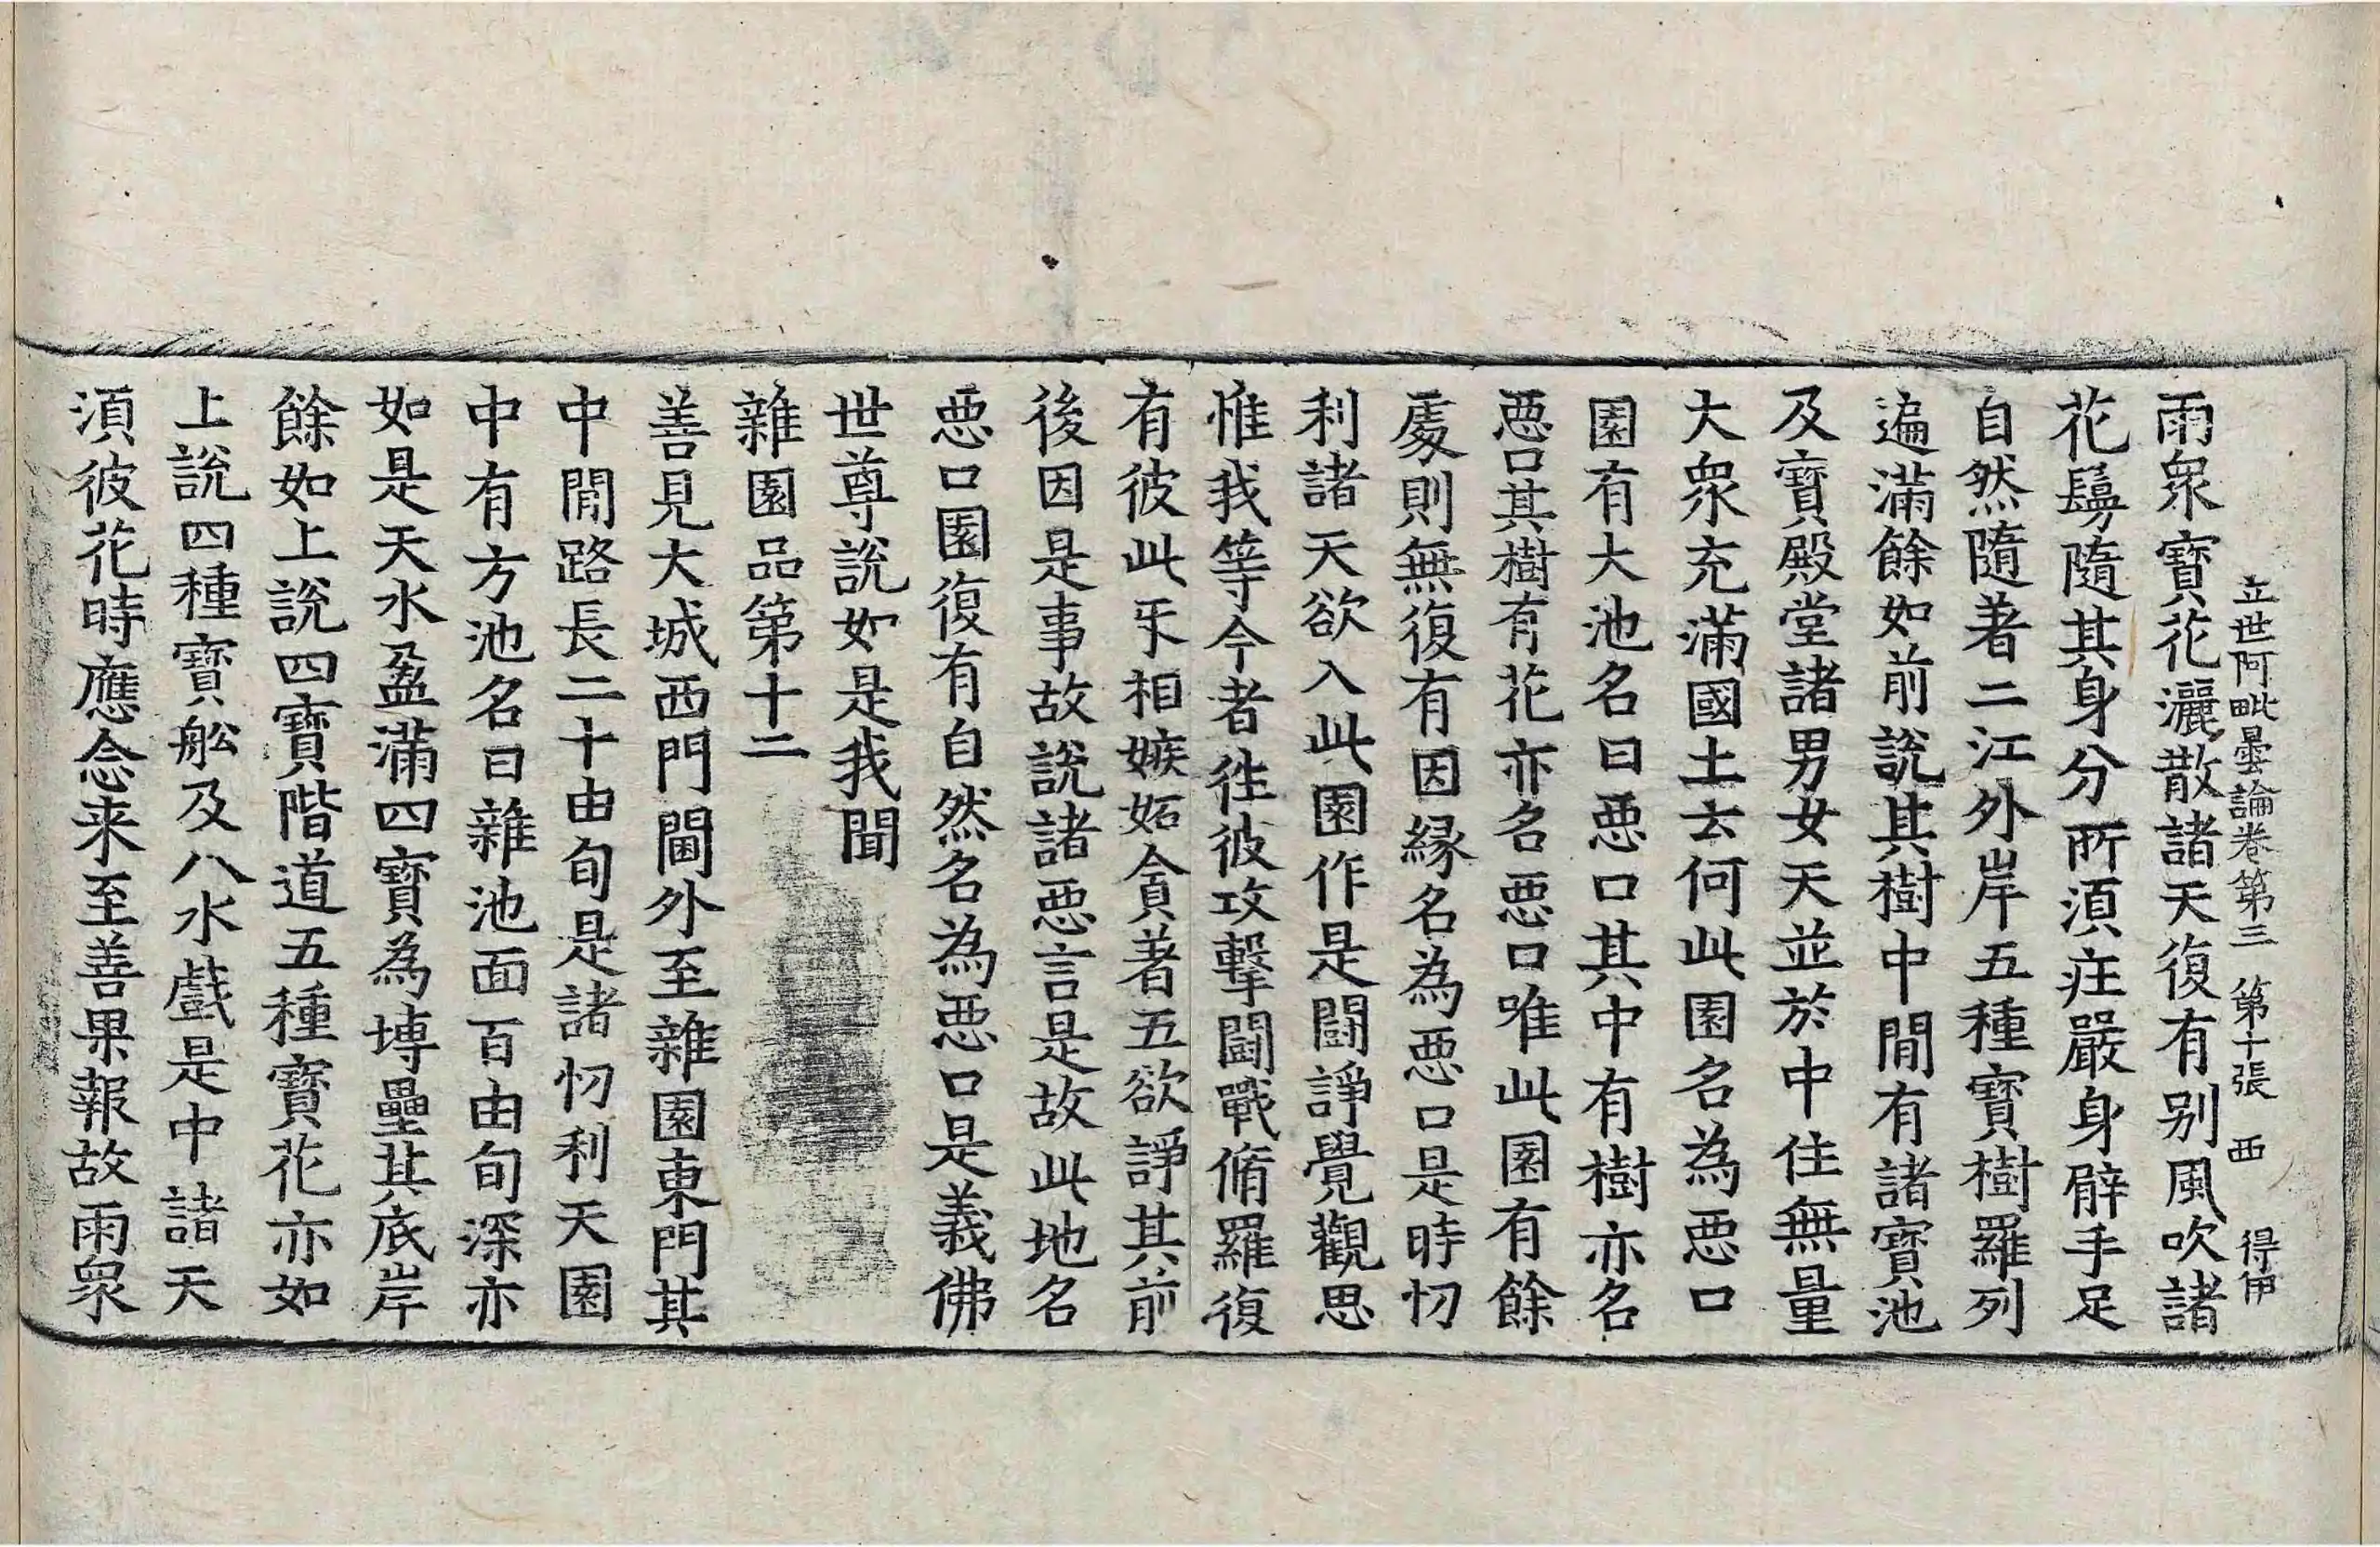 立世阿毗曇論卷第三 第十張 西 得伊
雨衆寶花灑散諸天復有別風吹諸
花鬘隨其身分所湏庄嚴身臂手足
自然隨著二江外岸五種寶樹羅列
遍滿餘如前說其樹中閒有諸寶池
及寶殿堂諸男女天並於中住無量
大衆充滿國土云何此園名為惡口
園有大池名曰惡口其中有樹亦名
惡口其樹有花亦名惡口唯此園有餘
處則無復有因緣名為惡口是時忉
利諸天欲入此園作是鬪諍覺觀思
惟我等今者徃彼攻擊鬪戰脩羅復
有彼此㸦相嫉妬貪著五欲諍其前
後因是事故說諸惡言是故此地名
惡口園復有自然名為惡口是義佛
世尊說如是我聞
雜園品第十二
善見大城西門閫外至雜園東門其
中閒路長二十由旬是諸忉利天園
中有方池名曰雜池面百由旬深亦
如是天水盈滿四寶為塼壘其底岸
餘如上說四寶階道五種寶花亦如
上說四種寶舩及八水戲是中諸天
湏彼花時應念来至善果報故雨衆